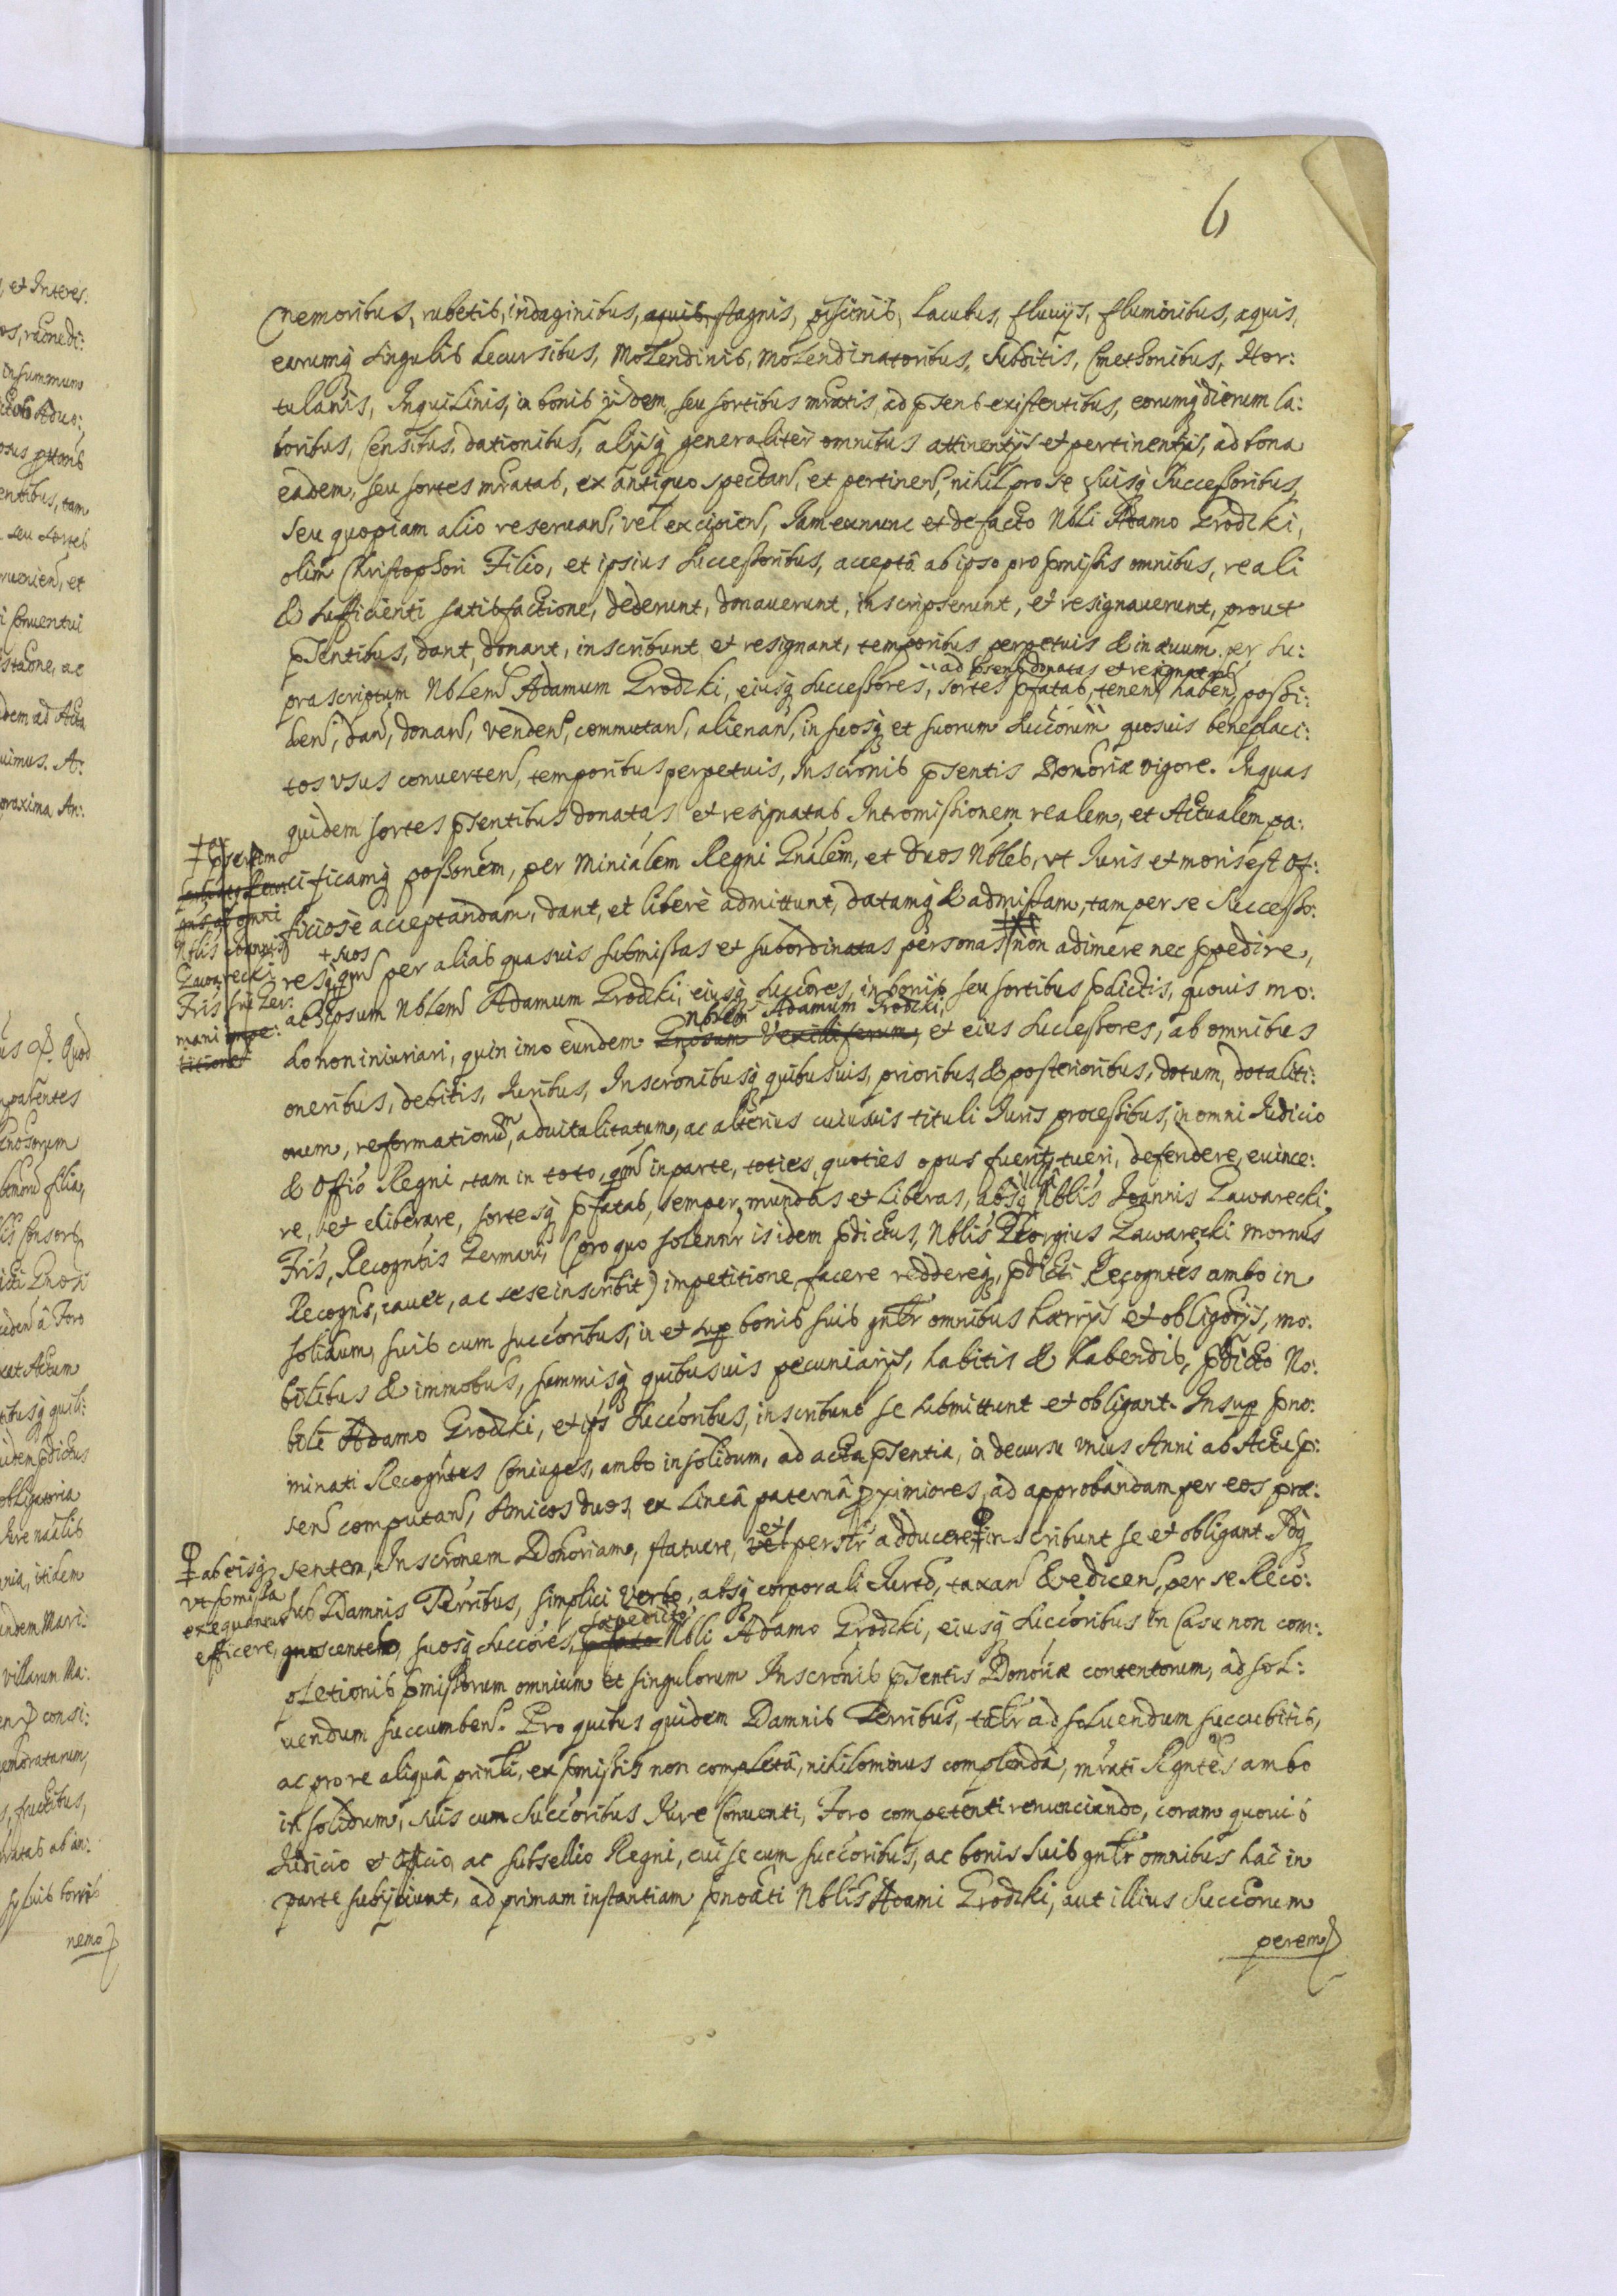 6
nemoribus, rubetis, indaginibus, aquis, stagnis, piscinis, Lacubus, fluvijs, fluminibus, aquis,
earumq singulis decursibus, Molendinis, Molendinatoribus, Subditis, Cmethonibus, Hor:
tulanis, Inquilinis, in bonis ijsdem, seu sortibus mratis, ad psens existentibus, eorumq dierum la:
boribus, Censibus, dationibus, alijsq generaliter omnibus attinentijs et pertinentijs, ad bona
eadem, seu sortes mratas, ex antiquo spectan, et pertinen, nihil pro se suisq Successoribus,
seu quopiam alio reservan, vel excipien, Iam exnunc et de facto Nbli Adamo Grodcki,
olim Christophori Filio, et ipsius Successoribus, acceptâ ab ipso pro pmissis omnibus, reali
& sufficienti satisfactione, dederunt, donaverunt, inscripserunt, et resignaverunt, prout
psentibus, dant, donant, inscribunt et resignant, temporibus perpetuis & in ævum. per su:
ad psens donatas et resignatas
prascriptum Nblem Adamum Grodcki, eiusq Successores, sortes pfatas, tenen, haben, possi:
den, dan, donan, venden, commutan, alienan, in suosq et suorum Succorum quosvis beneplaci:
tos vsus converten, temporibus perpetuis, Inscronis psentis Donoriæ vigore. In quas
quidem sortes psentibus donatas et resignatas Intromissionem realem, et Actualem pa:
cificamq possonem, per Minialem Regni Gnalem, et duos Nobles, vt Iuris et moris est of:
ficiose acceptandam, dant, et libere admittunt, datamq & admissam, tam per se Successo:
+ suos
resq qm per alias quasvis submissas et subordinatas personas non adimere nec ppedire,
ac ipsum Nblem Adamum Grodcki, eiusq Succores, in bonis seu sortibus pdictis, quovis mo:
Nblem Adamum Grodcki,
do non iniuriari, quin imo eundem Gnosum Vexilliferum, et eius Successores, ab omnibus
oneribus, debitis, Iuribus, Inscronibusq quibusvis, prioribus & posterioribus, dotum, dotaliti:
orum, reformationum, advitalitatum, ac alterius cuiusvis tituli Iuris processibus, in omni Iudicio
& Offio Regni, tam in toto, qm in parte, toties, quoties opus fuerit, tueri, defendere, evince:
re, et eliberare, sortesq pfatas, semper mundas et liberas, absq Nblis Ioannis Gawarecki,
Fris, Recogntis Germani, (pro quo solennr is idem pdictus, Nblis Georgius Gawarecki mornus
Recogns, cavet, ac sese inscribit) impetitione facere reddereq, pdicti Recogntes ambo in
solidum, suis cum succoribus, in et sup bonis suis gnlr omnibus hærrijs et obligorijs, mo:
bilibus & immobus, summisq quibusvis pecuniarijs, habitis & habendis, pdicto No:
bili Adamo Grodcki, et ips Succoribus, inscribunt se submittunt et obligant. Insup pno:
minati Recogntes Coniuges, ambo insolidum, ad acta psentia, in decursu vnius Anni ab Actu p:
sen computan, Amicos duos, ex Lineâ paternâ pximiores, ad approbandam per eos præ:
et
sentem Inscronem Donoriam, statuere, vel perstr adducere inscribunt se et obligant Idq
sub Damnis Terribus, simplici verbo, absq corporali Iurto, taxan & edicen, per se Reco:
sæpedicto
gnoscentem, suosq Succores, pfato Nbli Adamo Grodcki, eiusq Succoribus in Casu non com:
pletionis pmissorum omnium et singulorum Inscronis psentis Donoriæ contentorum, ad sol:
vendum succumben. Pro quibus quidem Damnis Terribus, taltr ad solvendum succubitis,
ac pro re aliquâ prinli, ex pmissis non completâ, nihilominus complendâ, mrati Rgntes ambo
in solidum, suis cum Succoribus Iure Conventi, Foro competenti renunciando, coram quovis
Iudicio et Officio, ac subsellio Regni, cui se cum succoribus, ac bonis suis gnlr omnibus hac in
parte subijciunt, ad primam instantiam pnoati Nblis Adami Grodcki, aut illius Succorum
perem
Nblis Ioannis
Gawarecki
Fris sui Ger:
mani impe:
titione
ab eisq
vt pmissa
exequantur
efficere,
et Interes.
in summum
entibus, tam
seu sortes
i Conventui
dem ad Acta
vimus. A:
proxima An:
Quod
Consort
à Foro
Actum
pdictus
obligatoria
itidem
undem Mari:
villarum Ma:
consi:
fructibus,
nemo